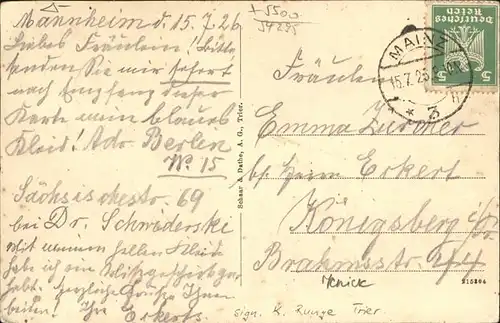 Mannheim d. 15.7.26
Liebes Fräulein! Bitte
senden Sie mir sofort
nach Empfang dieser
Karte mein blaues
Kleid! Adr. Berlin
W. 15
Sächsischestr. 69
bei Dr. Schwiderski
Mit meinem hellen Kleid
habe ich ein
habt. Herzliche Grüße Ihnen
beiden! Ihre Eckerts
+ 5500
54295
Schaar & Dathe, A. G., Trier.
Deutsches
Reich
5 5
MAINZ
15.7.26
* 3
Fräulein
Emma Zürcher
bei Herrn Eckert
Königsberg
Brahmsstr.
215204
sign. K. Runge Trier.